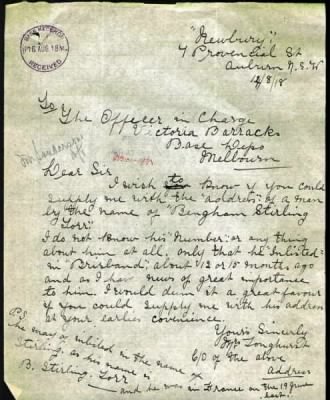 BASE RECORDS
16 AUG 1918
RECEIVED
"Newbury",
7 Provincial St
Auburn N.S.W
12/8/18
To
The Officer in Charge
Victoria Barracks
Base Depo
Melbourn
Dear Sir
I wish to know if you could
supply me with the "address" of a man
by the name of "Bengham Stirling
Lorr".
I do not know his "Number" or any thing
about him at all, only that he "Inlisted"
in "Brisband", about 12 or 15 months ago
and as I have news of great importance
to him. I would deem it a great favour
if you could supply me with his address
at your earlies covenience.
Yours Sincerly
Longhurst
C/o of the above
address
P.S.
he may of inlisted in the name of
Stirling, as his name is
B. Stirling. Lorr and he was in France on the 19 June
last.